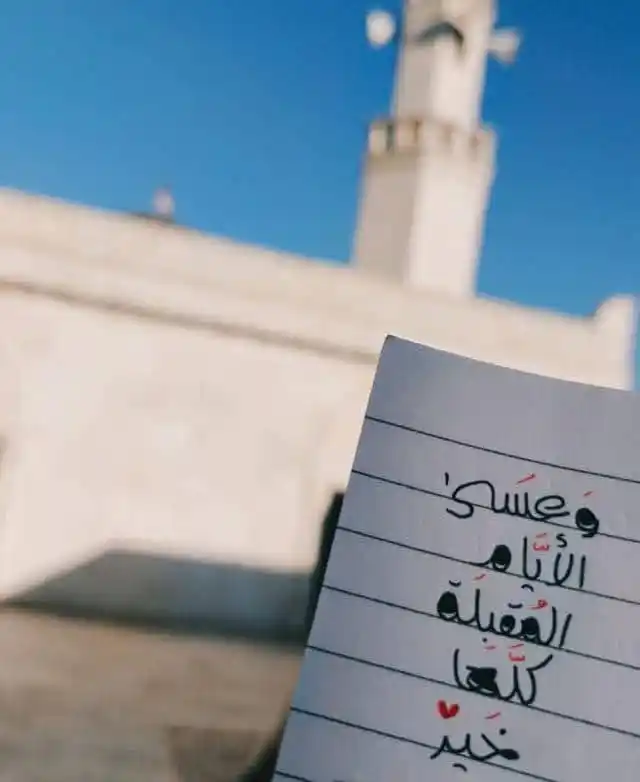 وَعسَىٰ
الأيَّام
المُقبلَة
كلَّهَا
خَير